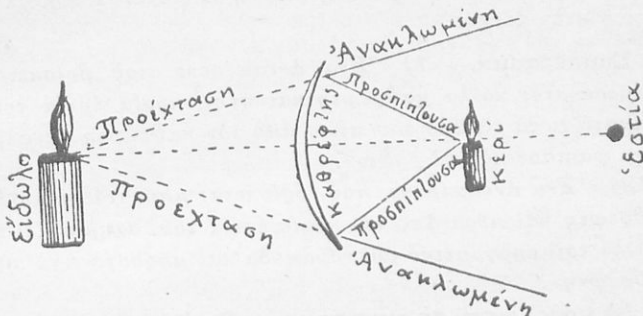 Εἴδωλο
Προέχταση
Προέχταση
Καθρεφτης
Ἀνακλωμένη
Προσπίπτουσα
Προσπίπτουσα
Ἀνακλωμένη
Κερι
Ἑστία